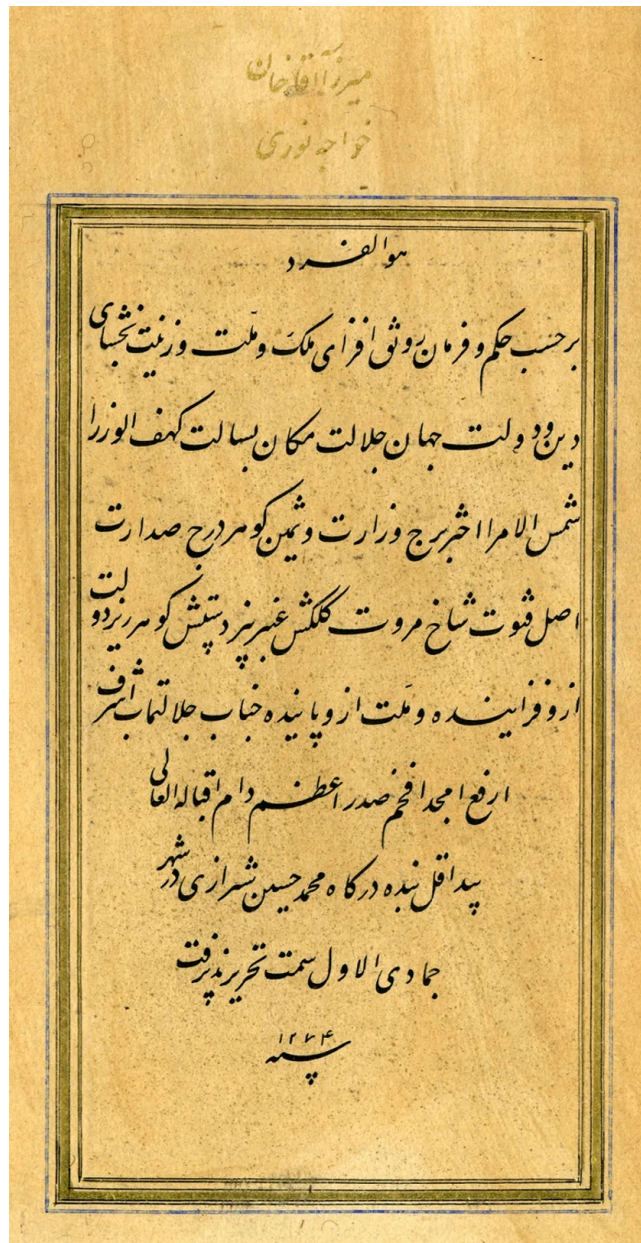 میرزا آقاخان
خواجه نوری
هو الفرد
بر حسب حکم و فرمان رونق افزای ملک و ملّت و زینت بخشای
دین و دولت جهان جلالت مکان بسالت کهف الوزرا
شمس الامرا اختر برج وزارت و ثمین کوهر درج صدارت
اصل فتوت شاخ مروت کلکش عنبر بیز دستش کوهر ریز دولت
ازو فزاینده و ملّت ازو پاینده جناب جلالتمآب اشرف
ارفع امجد افخم صدر اعظم دام اقباله العالی
بید اقل بنده درکاه محمد حسین شیرازی در شهر
جمادی الاول سمت تحریر پذیرفت
سنه ۱۲۷۴